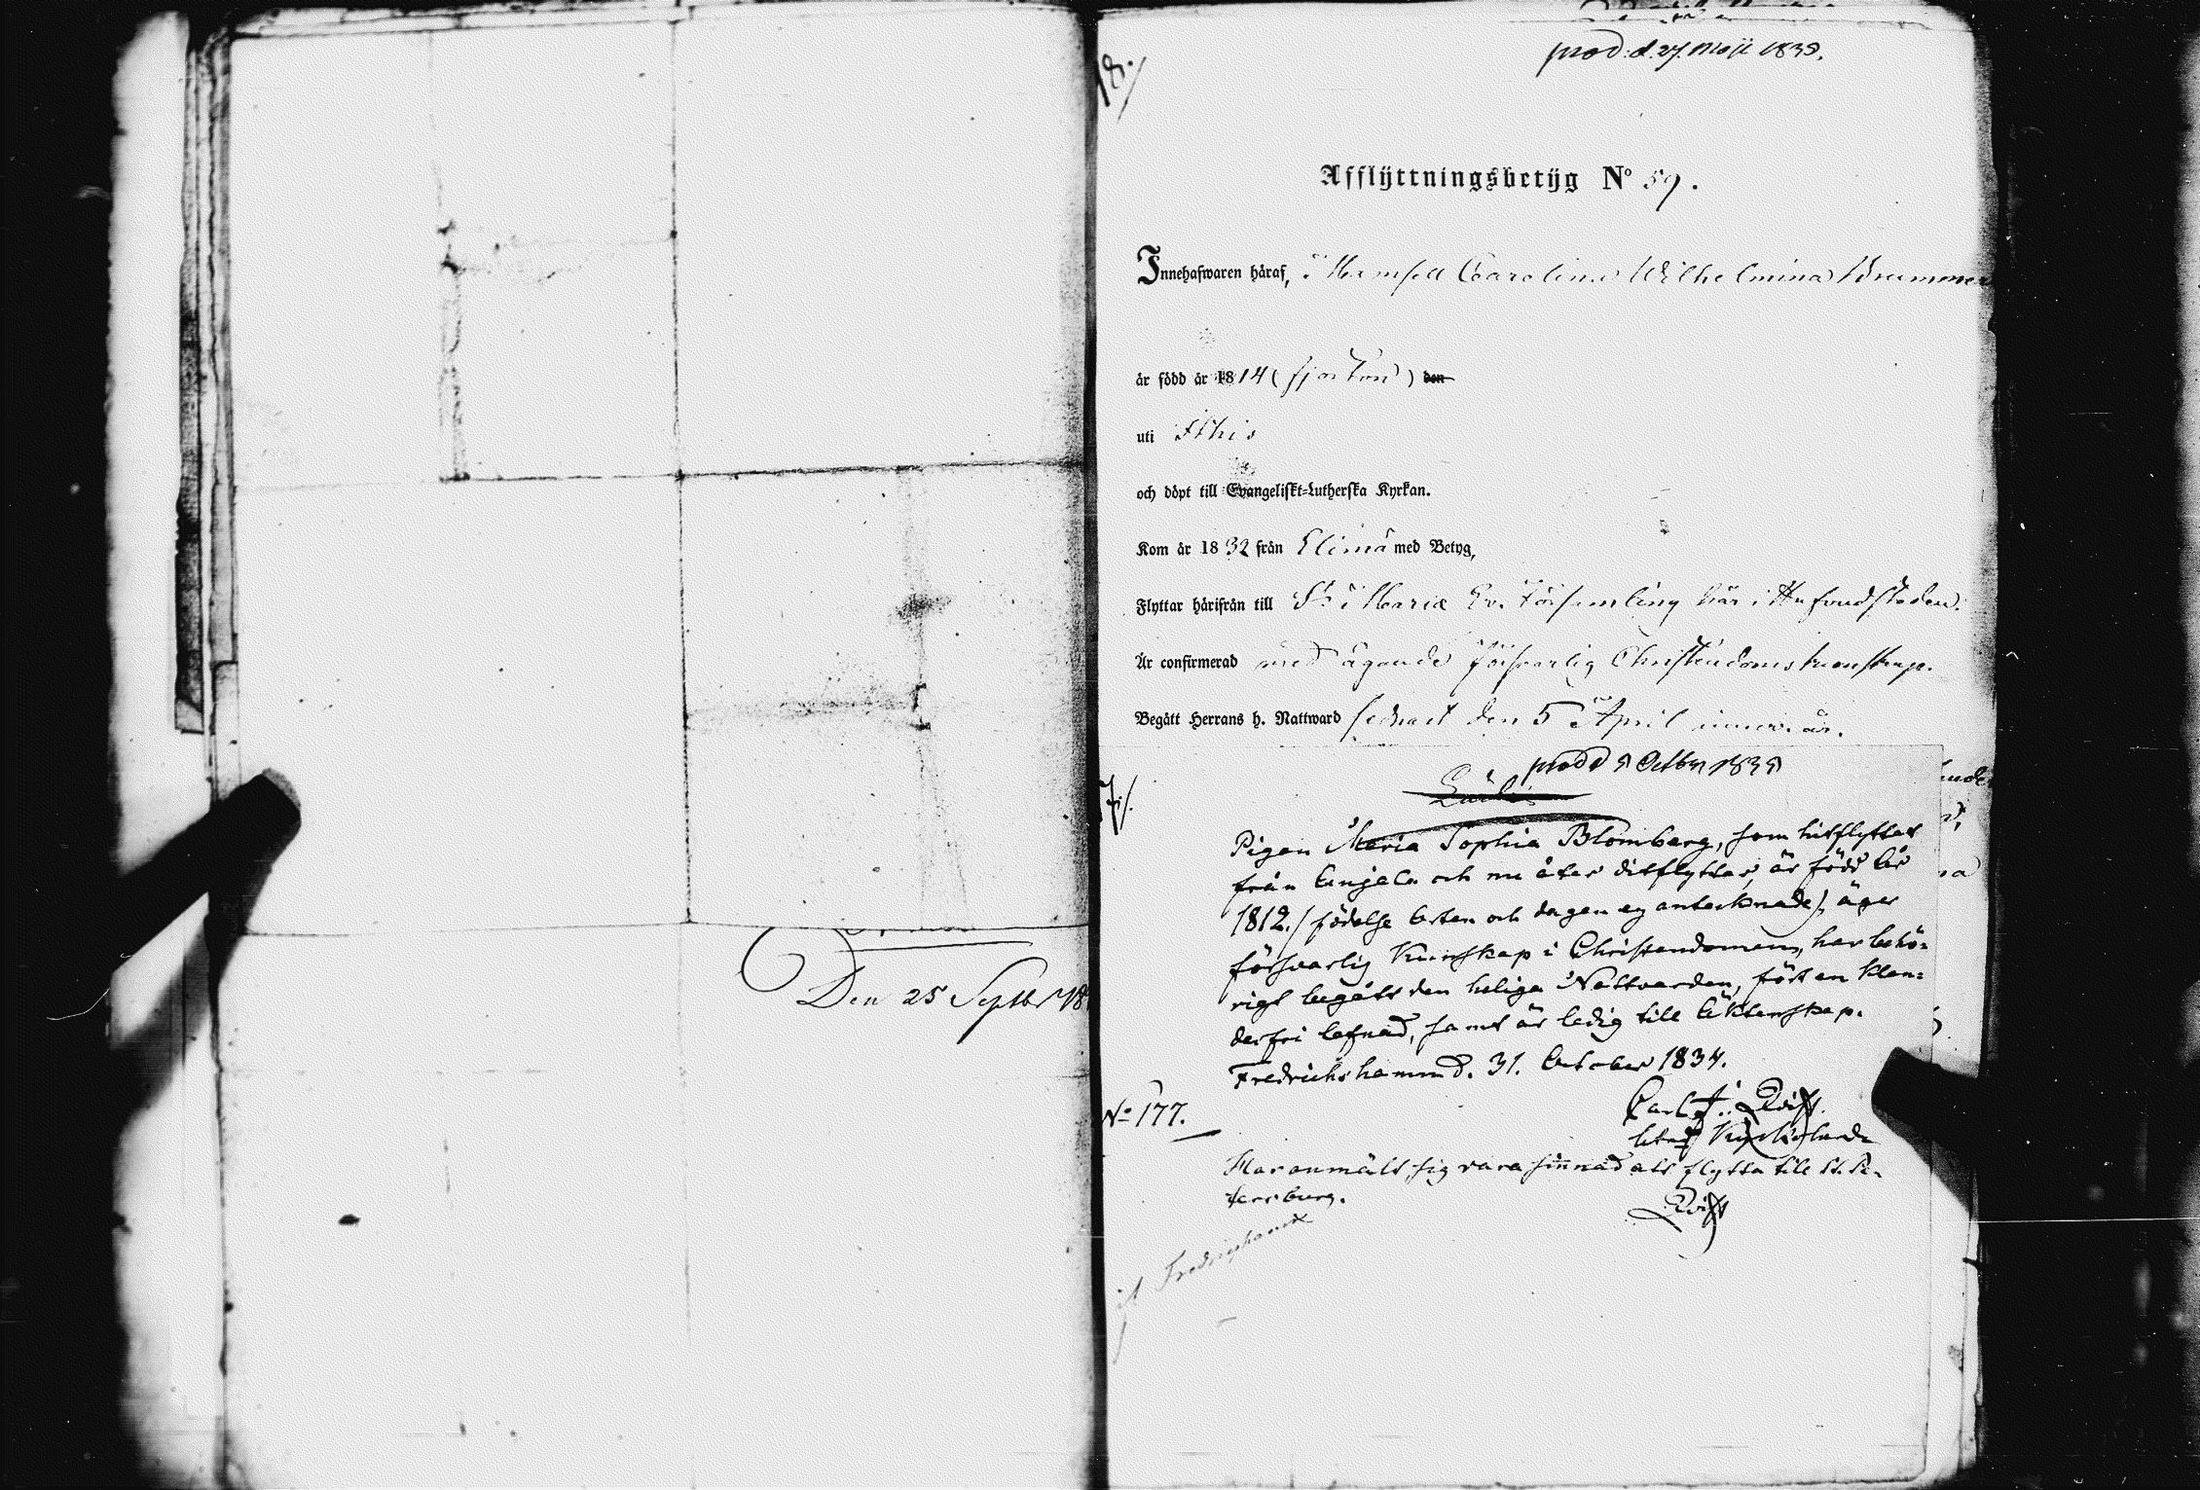 Den 25 Septbr 18
18./
prod. d. 27. Maji 1835.
Afflÿttningsbetÿg No 59.
Innehafwaren häraf, Mamsell Carolina Wilhelmina Brummer
är född år 1814 (fjorton) den
uti Ithis
och döpt till Evangeliskt=Lutherska Kyrkan.
Kom år 1832 från Elimä med Betyg,
Flyttar härifrån till St Mariæ Ev. Församling här i Hufvudstaden.
Är confirmerad med ägande försvarlig Christendomskunskap.
Begått Herrans h. Nattward sednast den 5 April innev. år.
prod. 9 Octbr 1835
7./.
Pigan Maria Sophia Blomberg, som hitflyttat
från Anjala och nu åter ditflyttar, är född År
1812. (födelse Orten och dagen ej antecknade), äger
försvarlig Kunskap i Christendomen, har behö-
rigt begått den heliga Nattvarden, fört en klan-
derfri lefnad, samt är ledig till Äktenskap.
Fredrichshamn d. 31. October 1834.
No 177.
Carl F. Qvist.
Har anmält sig vara sinnad att flytta till St. Pe-
tersburg.
Qvist
Fredrichshamn